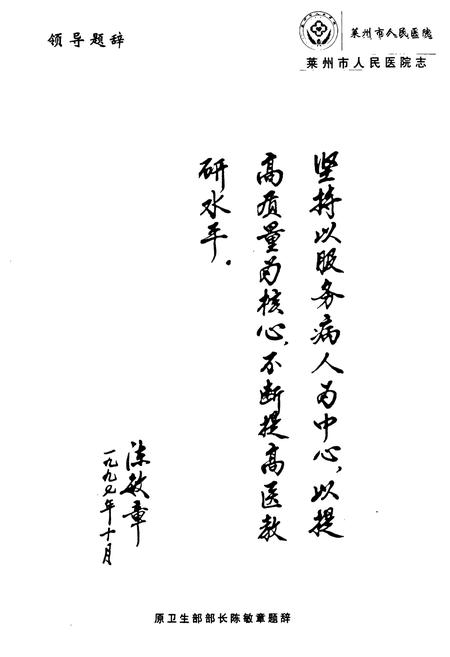 领导题辞
莱州市人民医院
莱州市人民医院志
坚持以服务病人为中心,以提
高质量为核心,不断提高医教
研水平。
陈敏章
一九九九年十月
原卫生部部长陈敏章题辞